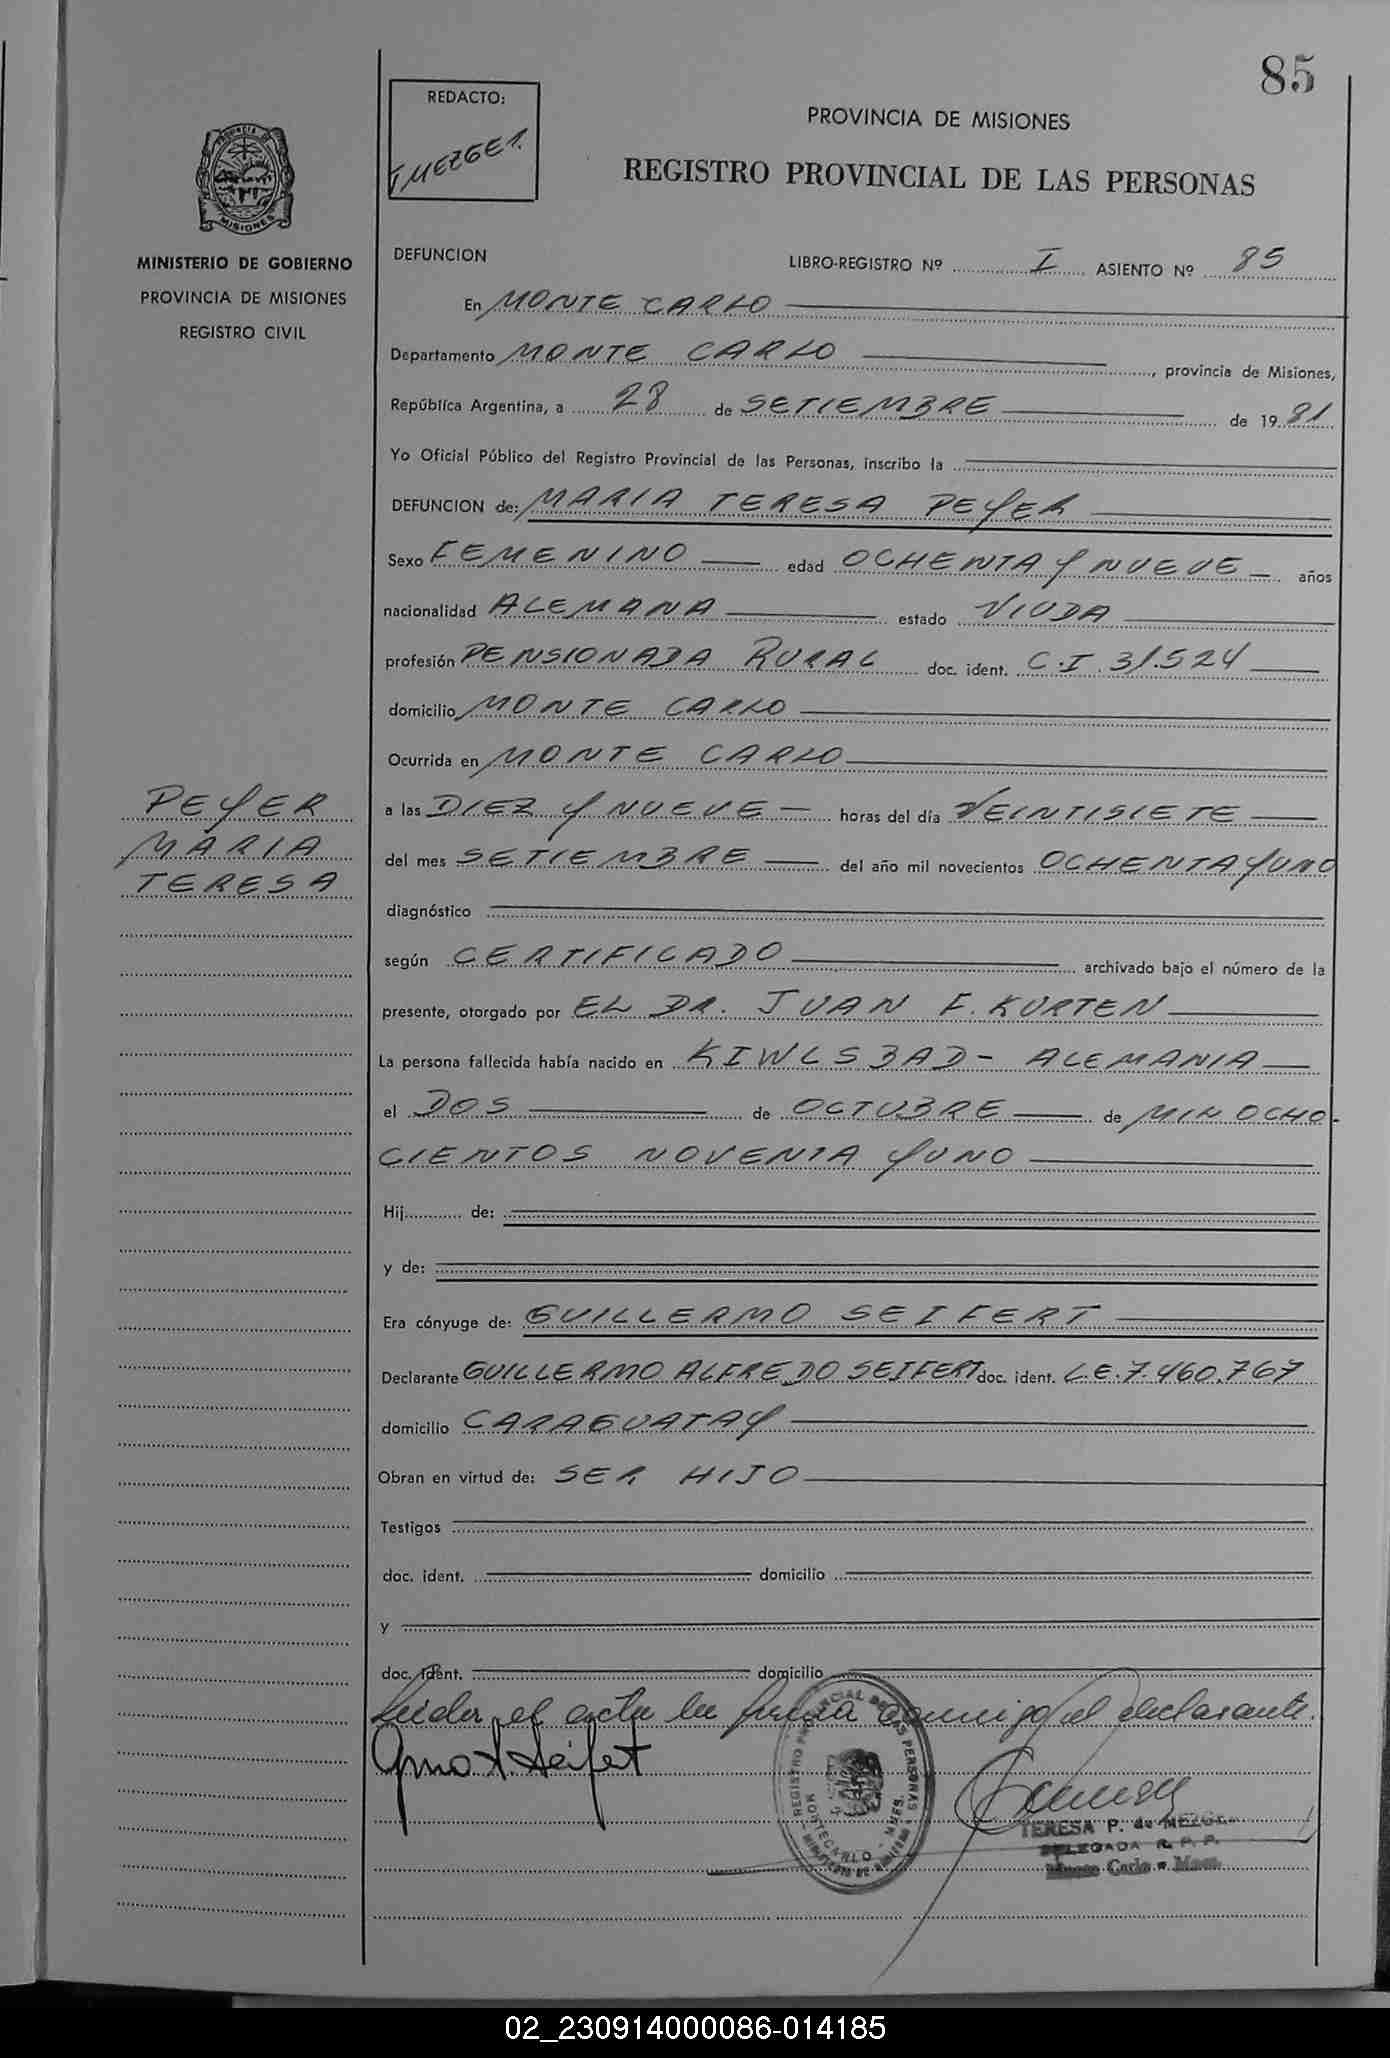 85
REDACTO:
T MEZGER.
PROVINCIA DE MISIONES
REGISTRO PROVINCIAL DE LAS PERSONAS
MISIONES
MINISTERIO DE GOBIERNO
PROVINCIA DE MISIONES
REGISTRO CIVIL
DEFUNCION
LIBRO-REGISTRO Nº I ASIENTO Nº 85
En MONTE CARLO
Departamento MONTE CARLO, provincia de Misiones,
República Argentina, a 28 de SETIEMBRE de 1981
Yo Oficial Público del Registro Provincial de las Personas, inscribo la
DEFUNCION de: MARIA TERESA PEYER
Sexo FEMENINO edad OCHENTA Y NUEVE años
nacionalidad ALEMANA estado VIUDA
profesión PENSIONADA RURAL doc. ident. C.I. 31.524
domicilio MONTE CARLO
Ocurrida en MONTE CARLO
PEYER
MARIA
TERESA
a las DIEZ Y NUEVE horas del día VEINTISIETE
del mes SETIEMBRE del año mil novecientos OCHENTA Y UNO
diagnóstico
según CERTIFICADO archivado bajo el número de la
presente, otorgado por EL DR. JUAN F. KURTEN
La persona fallecida había nacido en KIWLSBAD - ALEMANIA
el DOS de OCTUBRE de MIN OCHO-
CIENTOS NOVENTA Y UNO
Hij de:
y de:
Era cónyuge de: GUILLERMO SEIFERT
Declarante GUILLERMO ALFREDO SEIFERT doc. ident. L.E. 7.460.767
domicilio CARAGUATAY
Obran en virtud de: SER HIJO
Testigos
doc. ident. domicilio
y
doc. ident. domicilio
Leida el acta la firma conmigo el declarante.
REGISTRO PROVINCIAL DE LAS PERSONAS
MONTECARLO - MNES.
TERESA P. de MEZGER
DELEGADA R. P. P.
Monte Carlo - Mnes.
02_230914000086-014185